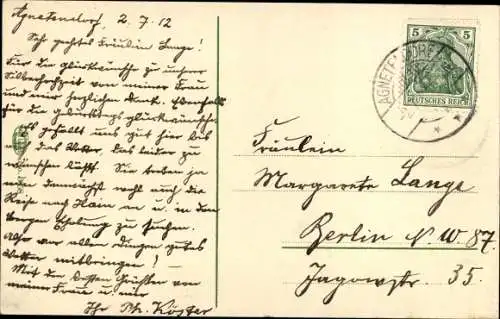 Agnetendorf, 2.7.12
Sehr geehrtes Fräulein Lange!
Für die Glückwünsche zu unserer
Silberhochzeit von meiner Frau
und mir herzlichen Dank. Ebenfalls
für die Geburtstagsglückwünsche.
Es gefällt uns gut hier bis
auf das Wetter, das leider zu
wünschen läßt. Sie treten ja
nun demnächst wohl auch die
Reise nach Hain an u. in den
Bergen Erholung zu suchen.
Also vor allen Dingen gutes
Wetter mitbringen! —
Mit den besten Grüßen von
meiner Frau u. mir
Ihr Köster
5 5
DEUTSCHES REICH
AGNETENDORF
Fräulein
Margarete Lange
Berlin N.W. 87.
Jagowstr. 35.